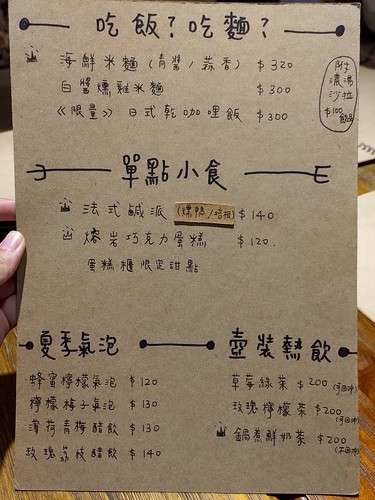 吃飯?吃麵?
海鮮米麵 (青醬/蒜香) $320
白醬燻雞米麵 $300
《限量》 日式乾咖哩飯 $300
附
濃湯
沙拉
$100
飲品
單點小食
法式鹹派 (燻鴨/培根) $140
熔岩巧克力蛋糕 $120.
蛋糕櫃限定甜點
夏季氣泡
蜂蜜檸檬氣泡 $120
檸檬梅子氣泡 $130
薄荷青梅醋飲 $130
玫瑰荔枝醋飲 $140
壺裝熱飲
草莓綠茶 $200 (可回沖)
玫瑰檸檬茶 $200
(可回沖)
鍋煮鮮奶茶 $200
(不回沖)